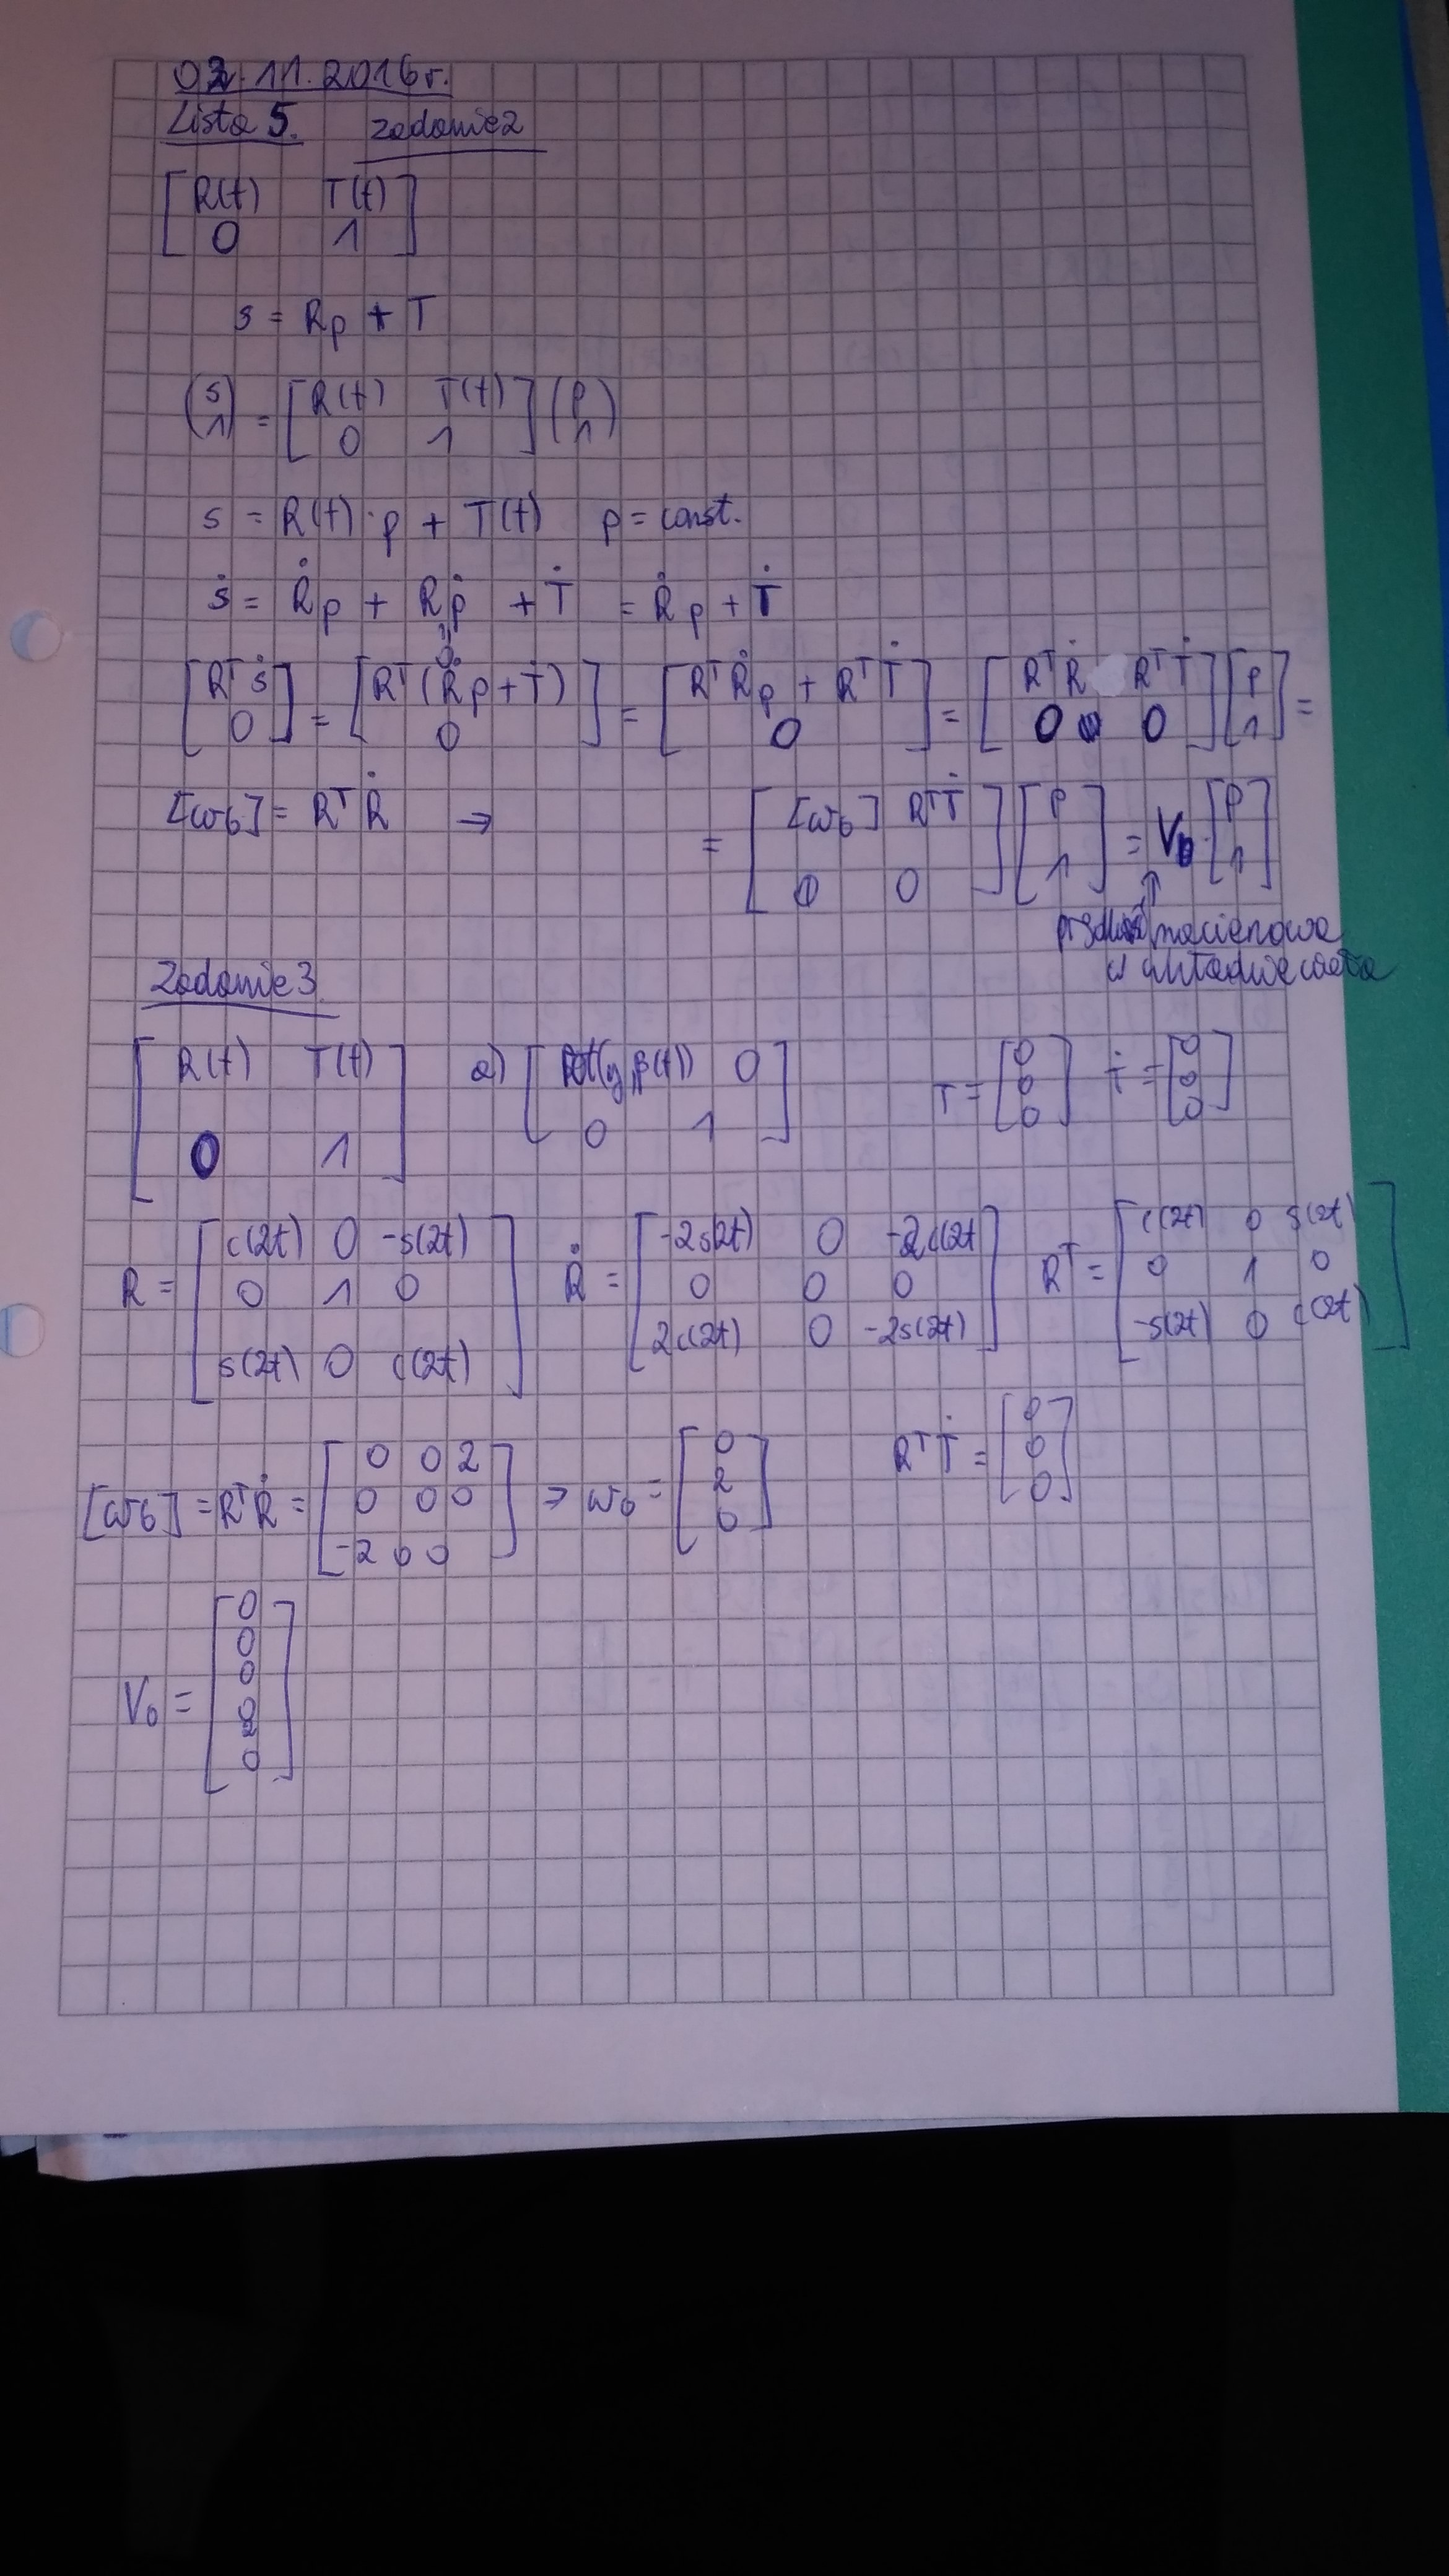 02.11.2016r.
Lista 5. zadanie 2
[R(t) T(t)
0 1]
s = Rp + T
(s
1) = [R(t) T(t)
0 1] (p
1)
s = R(t)·p + T(t) p = const.
ṡ = Ṙp + Rṗ + Ṫ = Ṙp + Ṫ
"
0
[Rᵀṡ
0] = [Rᵀ(Ṙp + Ṫ)
0] = [RᵀṘp + RᵀṪ
0] = [RᵀṘ RᵀṪ
0 0] [p
1] =
[ωb] = RᵀṘ → = [[ωb] RᵀṪ
0 0] [p
1] = Vb · [p
1]
↑
prędkość macierzowa
w układzie ciała
Zadanie 3
[R(t) T(t)
0 1] a) [Rot(y,β(t)) 0
0 1] T = [0
0
0] Ṫ = [0
0
0]
R = [c(2t) 0 -s(2t)
0 1 0
s(2t) 0 c(2t)] Ṙ = [-2s(2t) 0 -2c(2t
0 0 0
2c(2t) 0 -2s(2t)] Rᵀ = [c(2t) 0 s(2t)
0 1 0
-s(2t) 0 c(2t)]
[ωb] = RᵀṘ = [0 0 2
0 0 0
-2 0 0] ⇒ ωb = [0
2
0] RᵀṪ = [0
0
0]
Vb = [0
0
0
0
2
0]